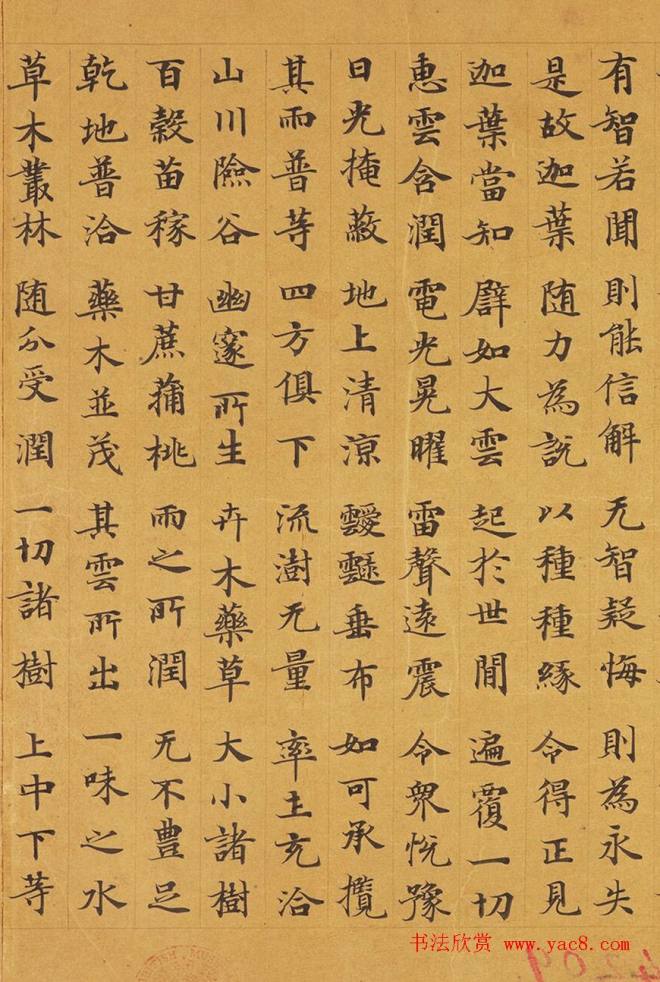 有智若聞 則能信解 无智疑悔 則為永失
是故迦葉 随力為說 以種種緣 令得正見
迦葉當知 譬如大雲 起於世間 遍覆一切
惠雲含潤 電光晃曜 雷聲遠震 令衆恱豫
日光掩蔽 地上清涼 靉靆垂布 如可承攬
其雨普等 四方俱下 流澍无量 率土充洽
山川險谷 幽邃所生 卉木藥草 大小諸樹
百穀苗稼 甘蔗蒱桃 雨之所潤 无不豊足
乾地普洽 藥木並茂 其雲所出 一味之水
草木叢林 随分受潤 一切諸樹 上中下等
书法欣赏 www.yac8.com